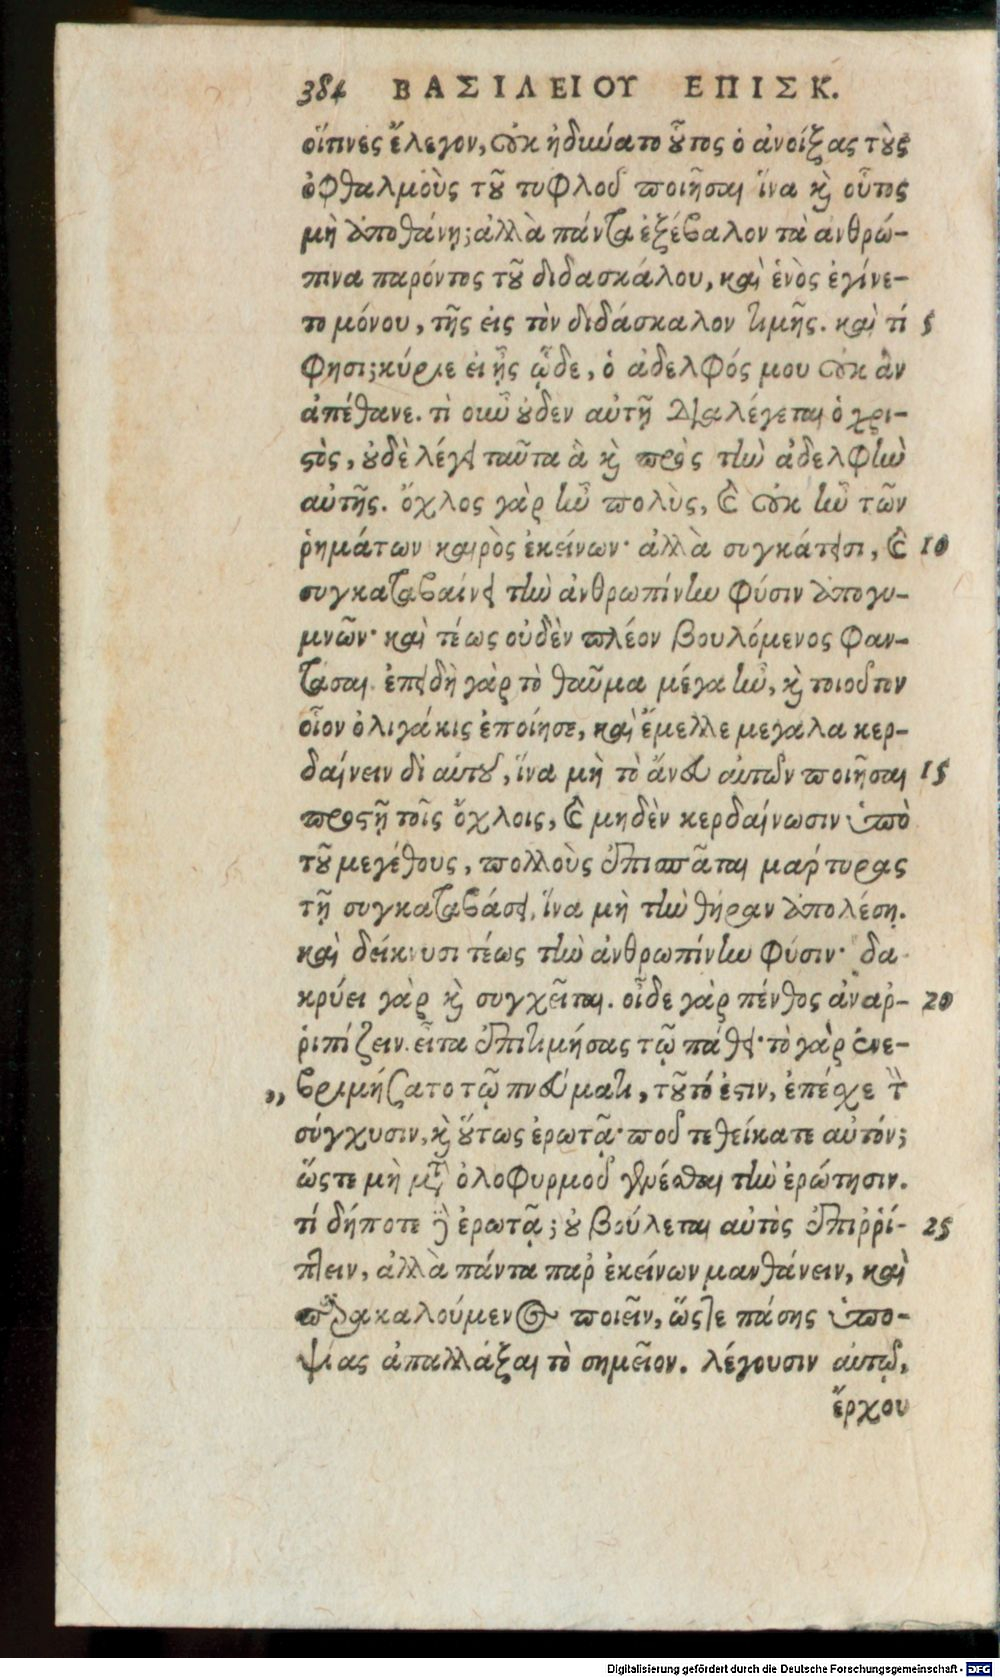 384 ΒΑΣΙΛΕΙΟΥ ΕΠΙΣΚ.
οἵτινες ἔλεγον, οὐκ ἠδύνατο οὗτος ὁ ἀνοίξας τοὺς
ὀφθαλμοὺς τοῦ τυφλοῦ ποιῆσαι ἵνα καὶ οὗτος
μὴ ἀποθάνῃ; ἀλλὰ πάντα ἐξέβαλον τὰ ἀνθρώ-
πινα παρόντος τοῦ διδασκάλου, καὶ ἑνὸς ἐγίνε-
το μόνου, τῆς εἰς τὸν διδάσκαλον τιμῆς. καὶ τί 5
φησι; κύριε εἰ ἦς ὧδε, ὁ ἀδελφός μου οὐκ ἂν
ἀπέθανε. τὶ οὖν οὐδεν αὐτῇ διαλέγεται ὁ χρι-
στὸς, οὐδὲ λέγει ταῦτα ἃ καὶ πρὸς τὴν ἀδελφὴν
αὐτῆς. ὄχλος γὰρ ἦν πολὺς, καὶ οὐκ ἦν τῶν
ῥημάτων καιρὸς ἐκείνων· ἀλλὰ συγκάτεισι, καὶ 10
συγκαταβαίνει τὴν ἀνθρωπίνην φύσιν ἀπογυ-
μνῶν· καὶ τέως οὐδὲν πλέον βουλόμενος φαν-
τάσαι. ἐπειδὴ γὰρ τὸ θαῦμα μέγα ἦν, καὶ τοιοῦτον
οἷον ὀλιγάκις ἐποίησε, καὶ ἔμελλε μεγαλα κερ-
δαίνειν δι αὐτοῦ, ἵνα μὴ τὸ ἄνευ αὐτῶν ποιῆσαι 15
προσῇ τοῖς ὄχλοις, καὶ μηδὲν κερδαίνωσιν ὑπὸ
τοῦ μεγέθους, πολλοὺς ἐπισπᾶται μαρτυρας
τῇ συγκαταβάσει, ἵνα μὴ τὴν θήραν ἀπολέσῃ.
καὶ δείκνυσι τέως τὴν ἀνθρωπίνην φύσιν· δα-
κρύει γὰρ καὶ συγχεῖται. οἶδε γὰρ πένθος ἀναρ- 20
ριπίζειν. εἶτα ἐπιτιμήσας τῷ πάθει· τὸ γὰρ ἐνε-
„ βριμήσατο τῷ πνεύματι, τοῦτό ἐστιν, ἐπέσχε τὴν
σύγχυσιν, καὶ οὕτως ἐρωτᾷ· ποῦ τεθείκατε αὐτόν;
ὥστε μὴ μετ ὀλοφυρμοῦ γενέσθαι τὴν ἐρώτησιν.
τί δήποτε δὲ ἐρωτᾷ; οὐ βούλεται αὐτὸς ἐπιῤῥί- 25
πτειν, ἀλλὰ πάντα παρ ἐκείνων μανθάνειν, καὶ
παρακαλούμενος ποιεῖν, ὥστε πάσης ὑπο-
ψίας ἀπαλλάξαι τὸ σημεῖον. λέγουσιν αὐτῷ,
ἔρχου
Digitalisierung gefördert durch die Deutsche Forschungsgemeinschaft - DFG